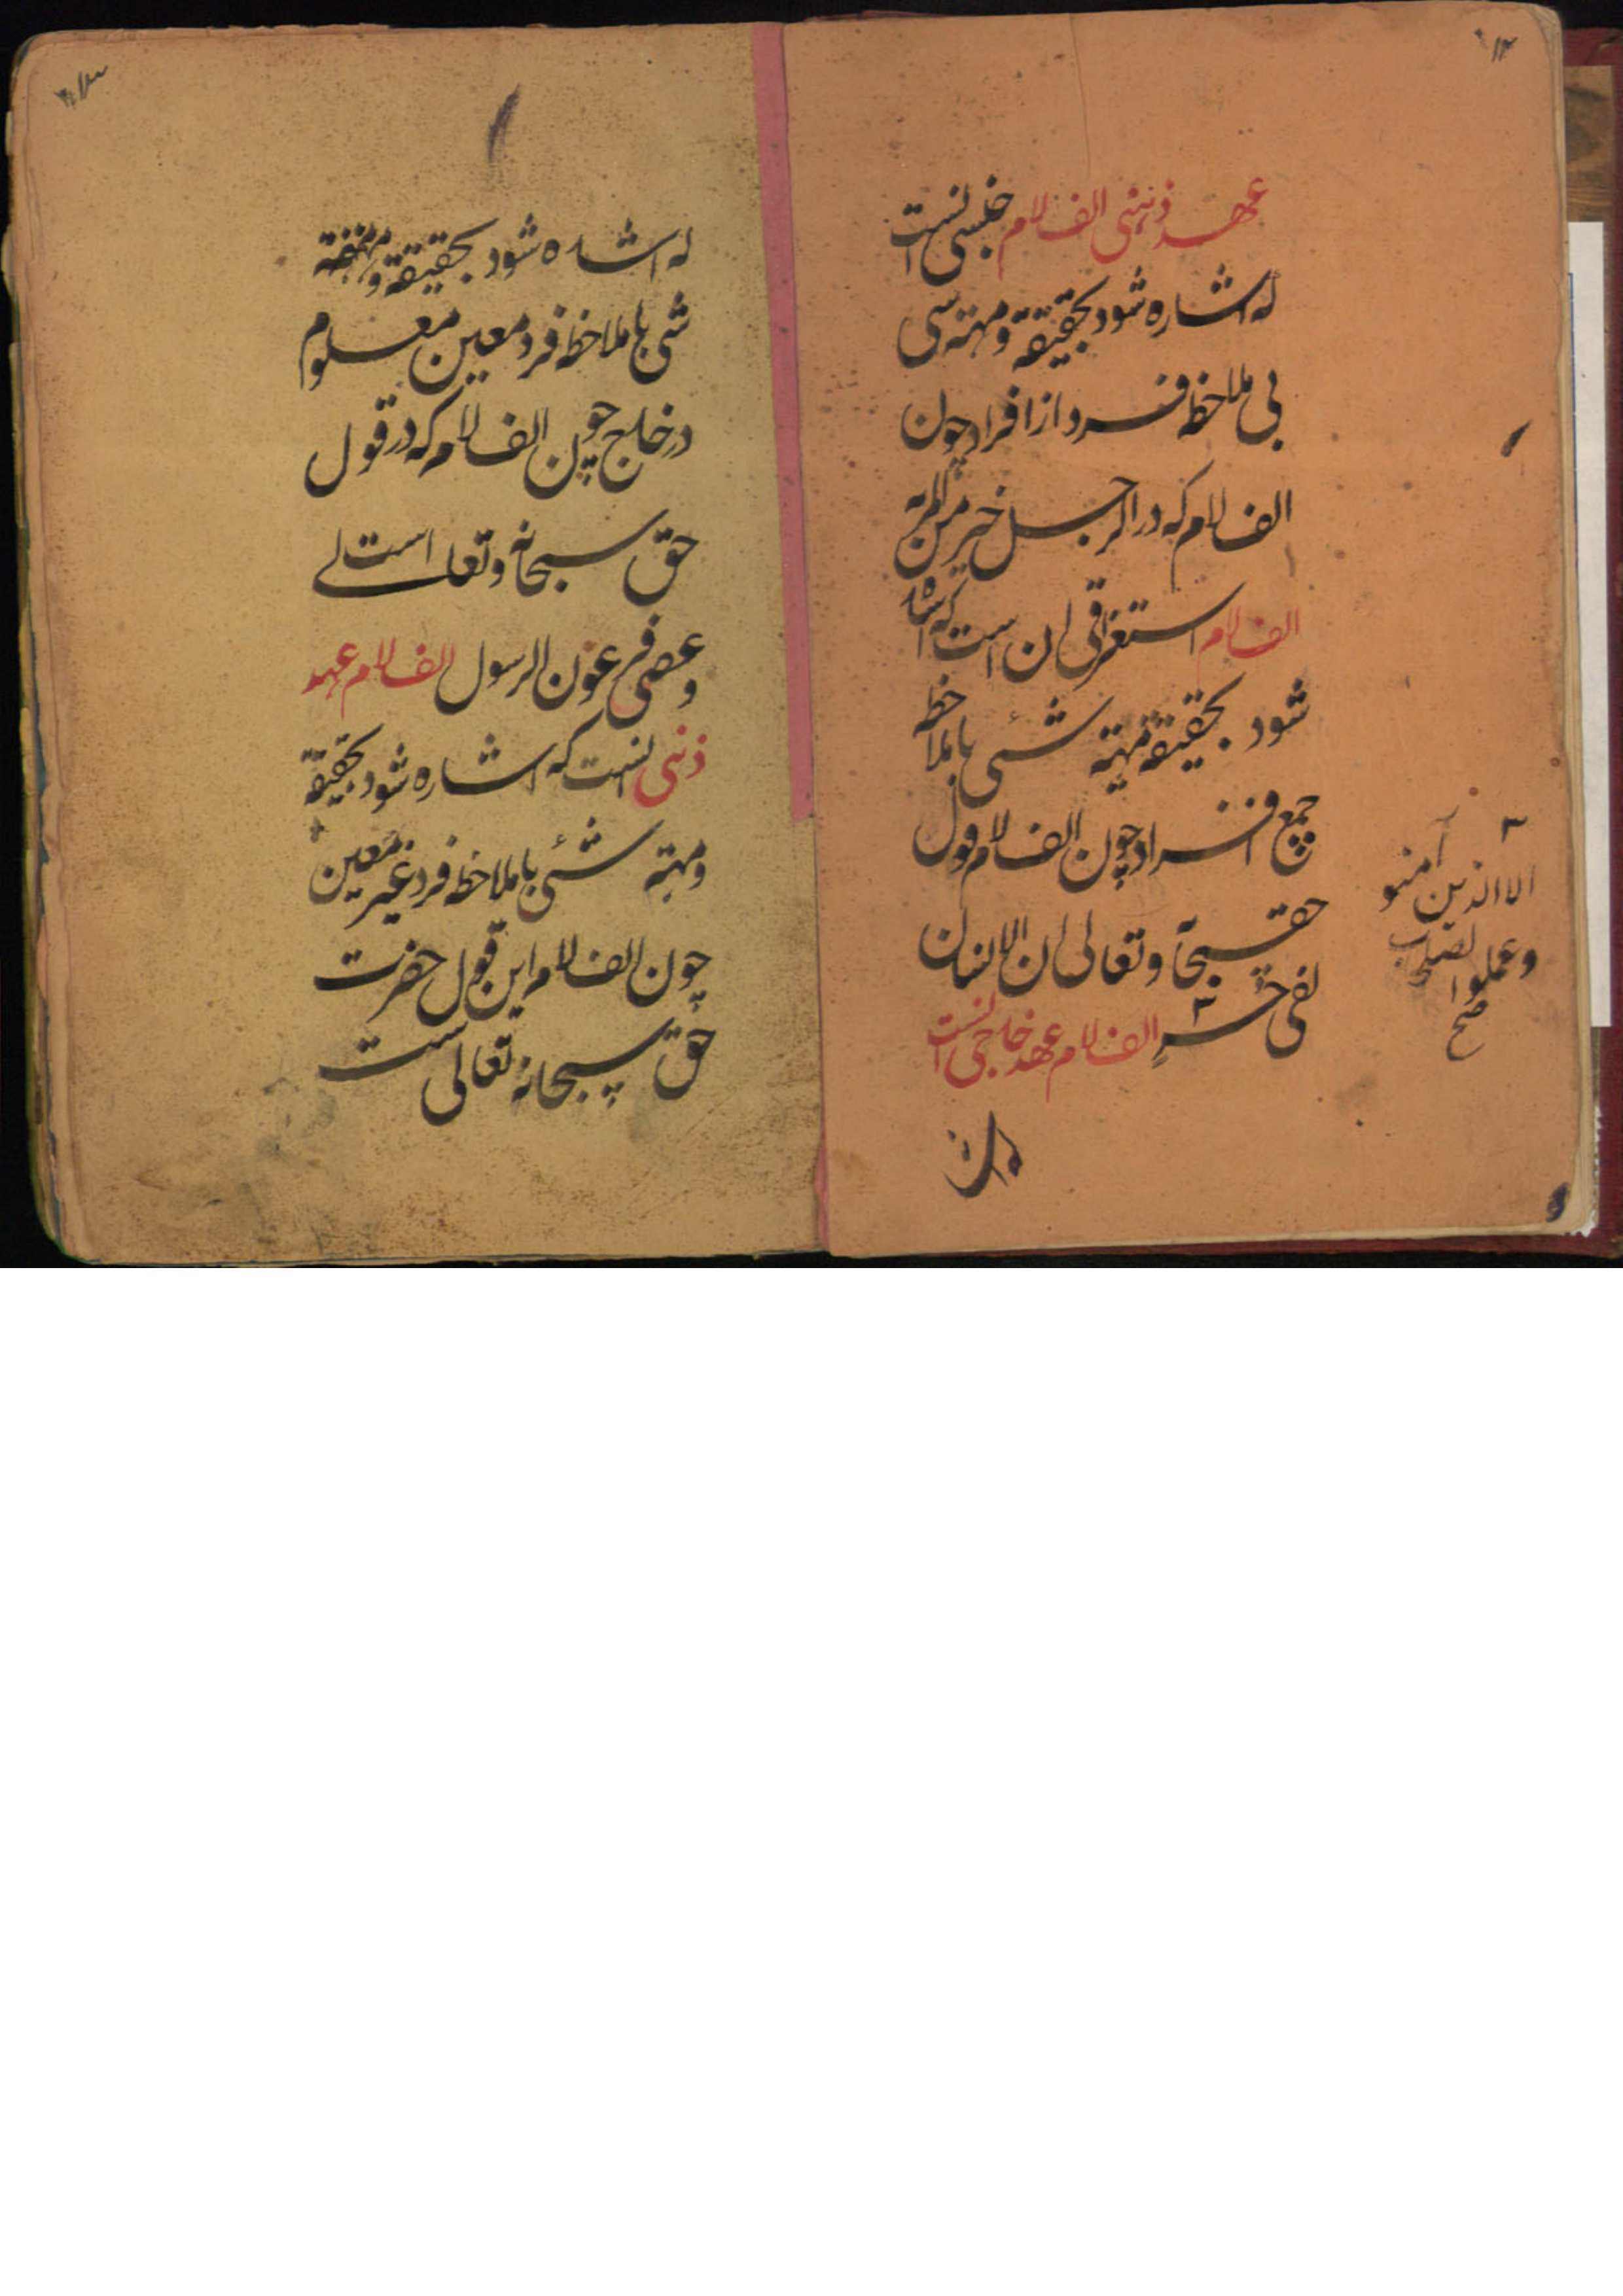 ۱۲
عهد ذهنی الف لام جنسی انست
که اشاره شود بحقیقة ومهیة شی
بی ملاحظه فرد از افراد چون
الف لام که در الرجل خیر من المرءة
الف لام استغراقی ان است که اشاره
شود بحقیقة مهیة شئی با ملاحظه
جمیع افراد چون الف لام قول
حق سبحانه وتعالی ان الانسان
لفی خسر ۲ الف لام عهد خارجی انست
۲
الا الذین آمنو
وعملوا الصلحت
صح
۱۳
که اشاره شود بحقیقة ومهیة
شی با ملاحظه فرد معین معلوم
در خارج چون الف لام که در قول
حق سبحانه وتعالی است
وعصی فرعون الرسول الف لام عهد
ذهنی انست که اشاره شود بحقیقة
ومهیة شئی با ملاحظه فرد غیر معین
چون الف لام این قول حضرت
حق سبحانه تعالی است